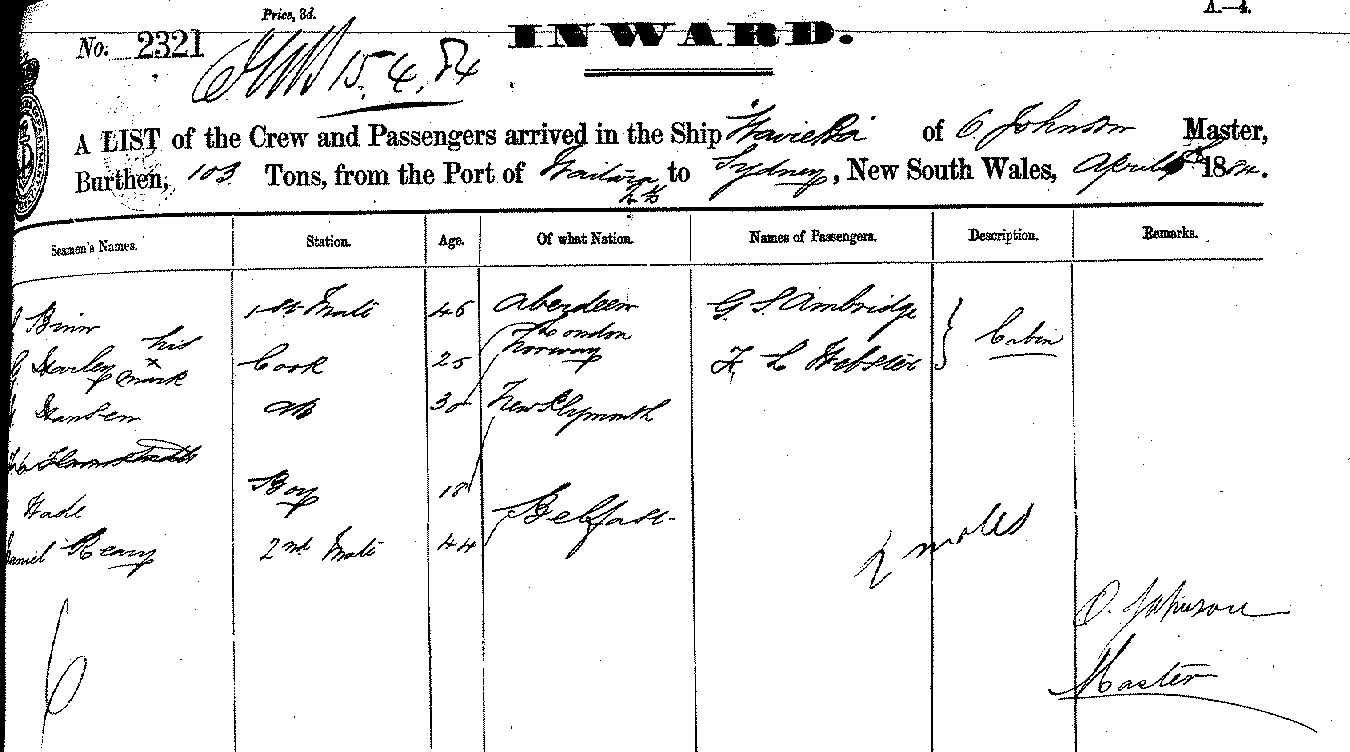 Price, 3d.
A.—4.
No. 2321
INWARD.
15.4.84
A LIST of the Crew and Passengers arrived in the Ship of O Johnson Master,
Burthen, 103 Tons, from the Port of to Sydney, New South Wales, April 1884.
Seamen's Names. Station. Age. Of what Nation. Names of Passengers. Description. Remarks.
Binn 1st Mate 46 Aberdeen G. S. Ambridge
London Cabin
his x mark Cook 25 Norway F. L. Webster
Hansen AB 30 New Plymouth
Boy 18
Wade Belfast
Daniel Keary 2nd Mate 44 2 males
O. Johnson
6 Master